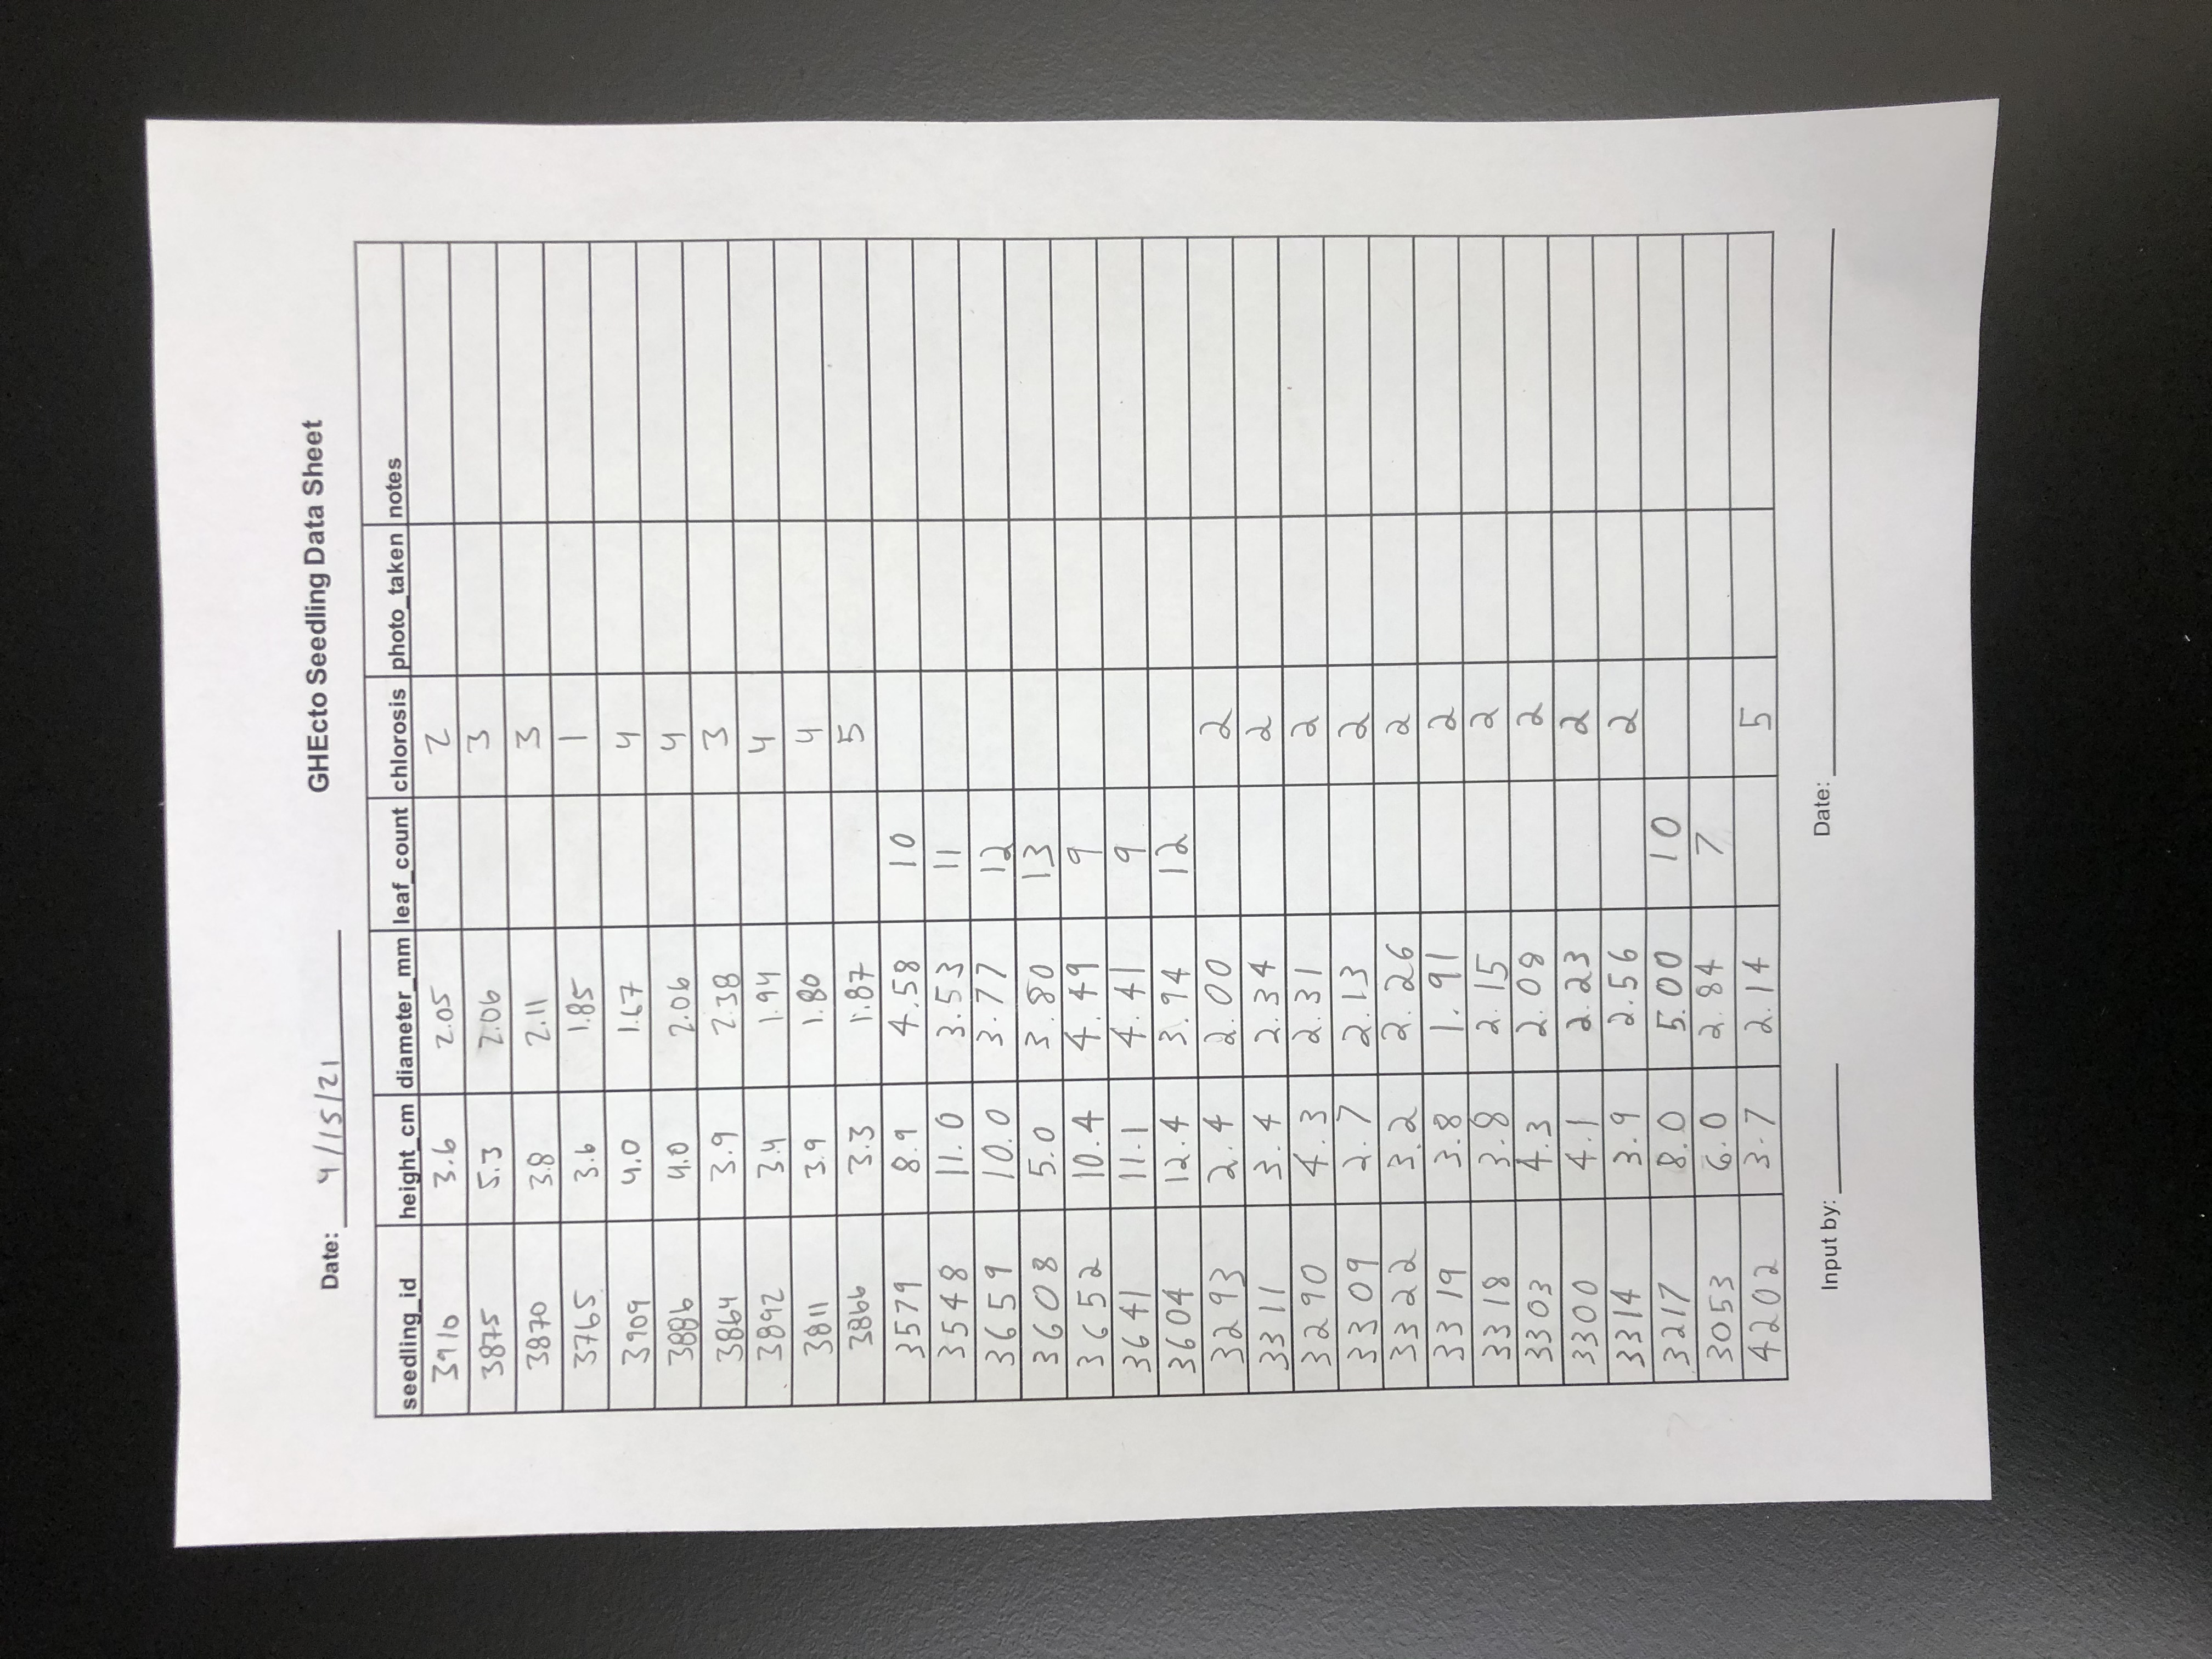 Date: 4/15/21 GHEcto Seedling Data Sheet
seedling_id height_cm diameter_mm leaf_count chlorosis photo_taken notes
3910 3.6 2.05 2
3875 5.3 2.06 3
3870 3.8 2.11 3
3765 3.6 1.85 1
3909 4.0 1.67 4
3886 4.0 2.06 4
3864 3.9 2.38 3
3892 3.4 1.94 4
3811 3.9 1.80 4
3866 3.3 1.87 5
3579 8.9 4.58 10
3548 11.0 3.53 11
3659 10.0 3.77 12
3608 5.0 3.80 13
3652 10.4 4.49 9
3641 11.1 4.41 9
3604 12.4 3.94 12
3293 2.4 2.00 2
3311 3.4 2.34 2
3290 4.3 2.31 2
3309 2.7 2.13 2
3322 3.2 2.26 2
3319 3.8 1.91 2
3318 3.8 2.15 2
3303 4.3 2.08 2
3300 4.1 2.23 2
3314 3.9 2.56 2
3217 8.0 5.00 10
3053 6.0 2.84 7
4202 3.7 2.14 5
Input by: Date: